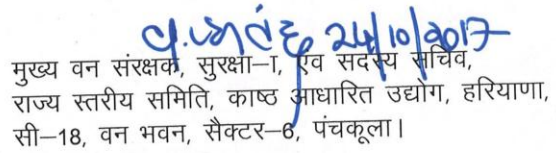 24/10/2017
मुख्य वन संरक्षक, सुरक्षा–I, एव सदस्य सचिव,
राज्य स्तरीय समिति, काष्ठ आधारित उद्योग, हरियाणा,
सी–18, वन भवन, सैक्टर–6, पंचकूला।